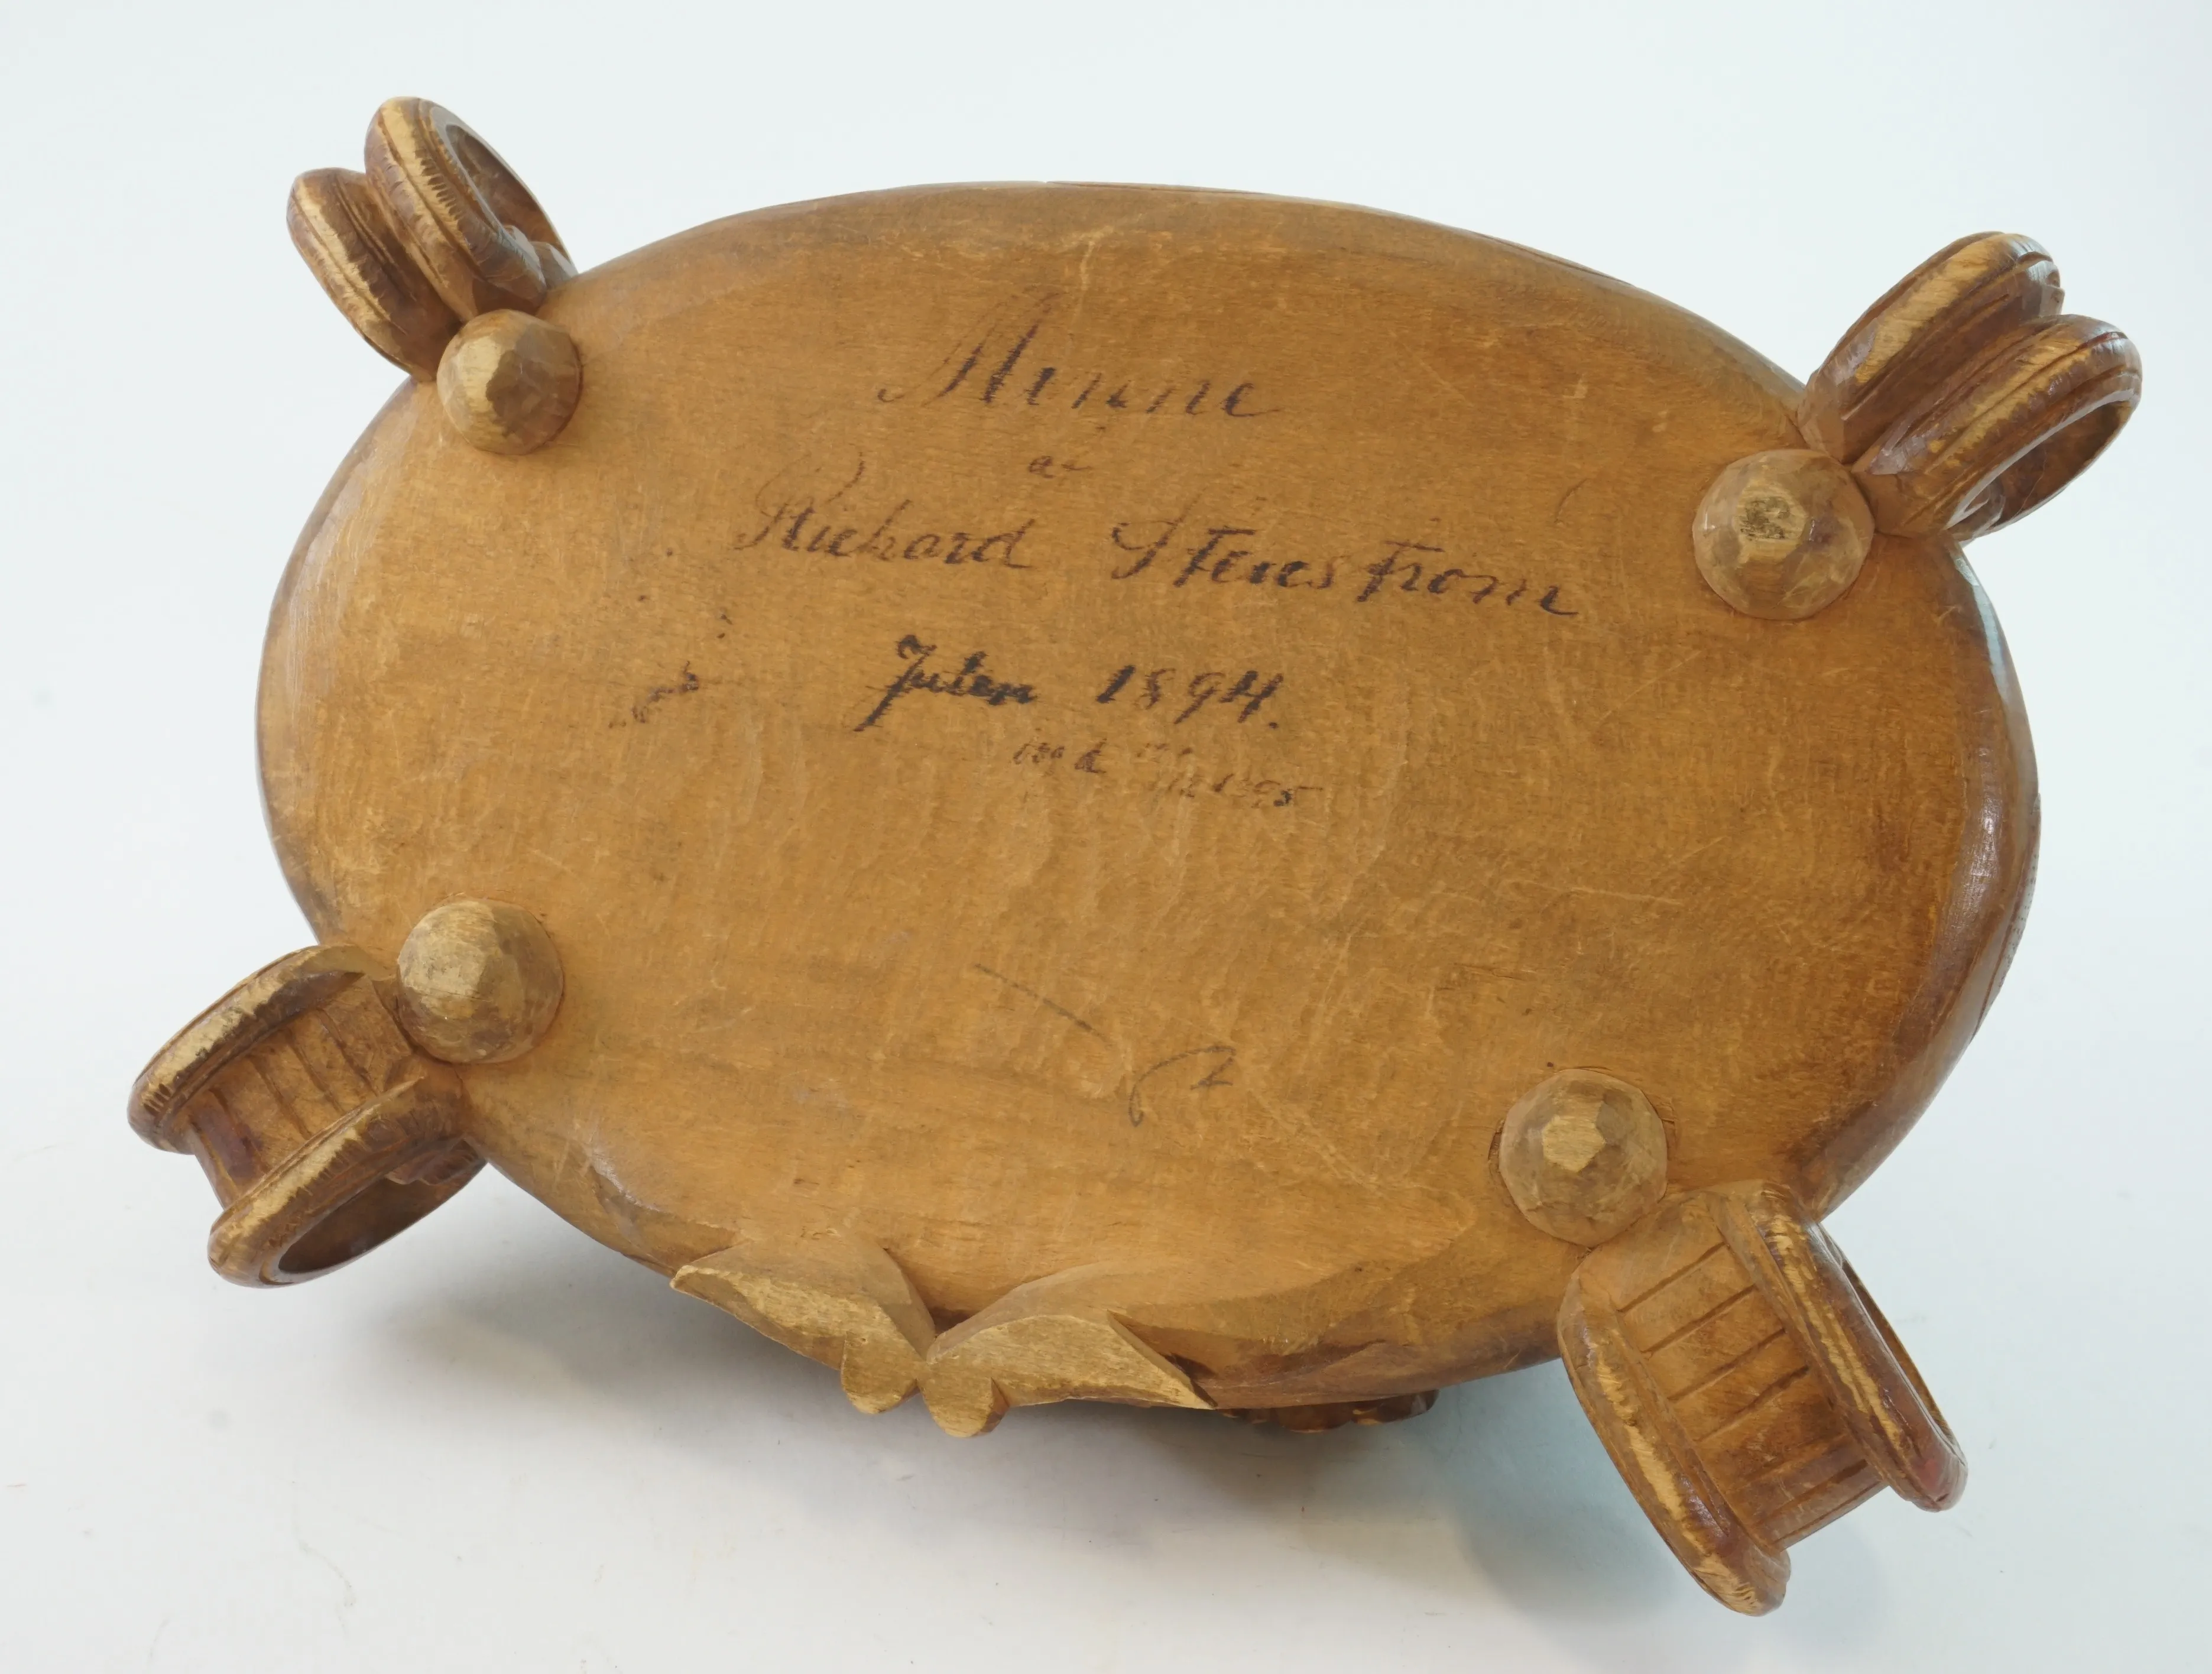 Minne
af
Richard Stenström
Julen 1894.
1895